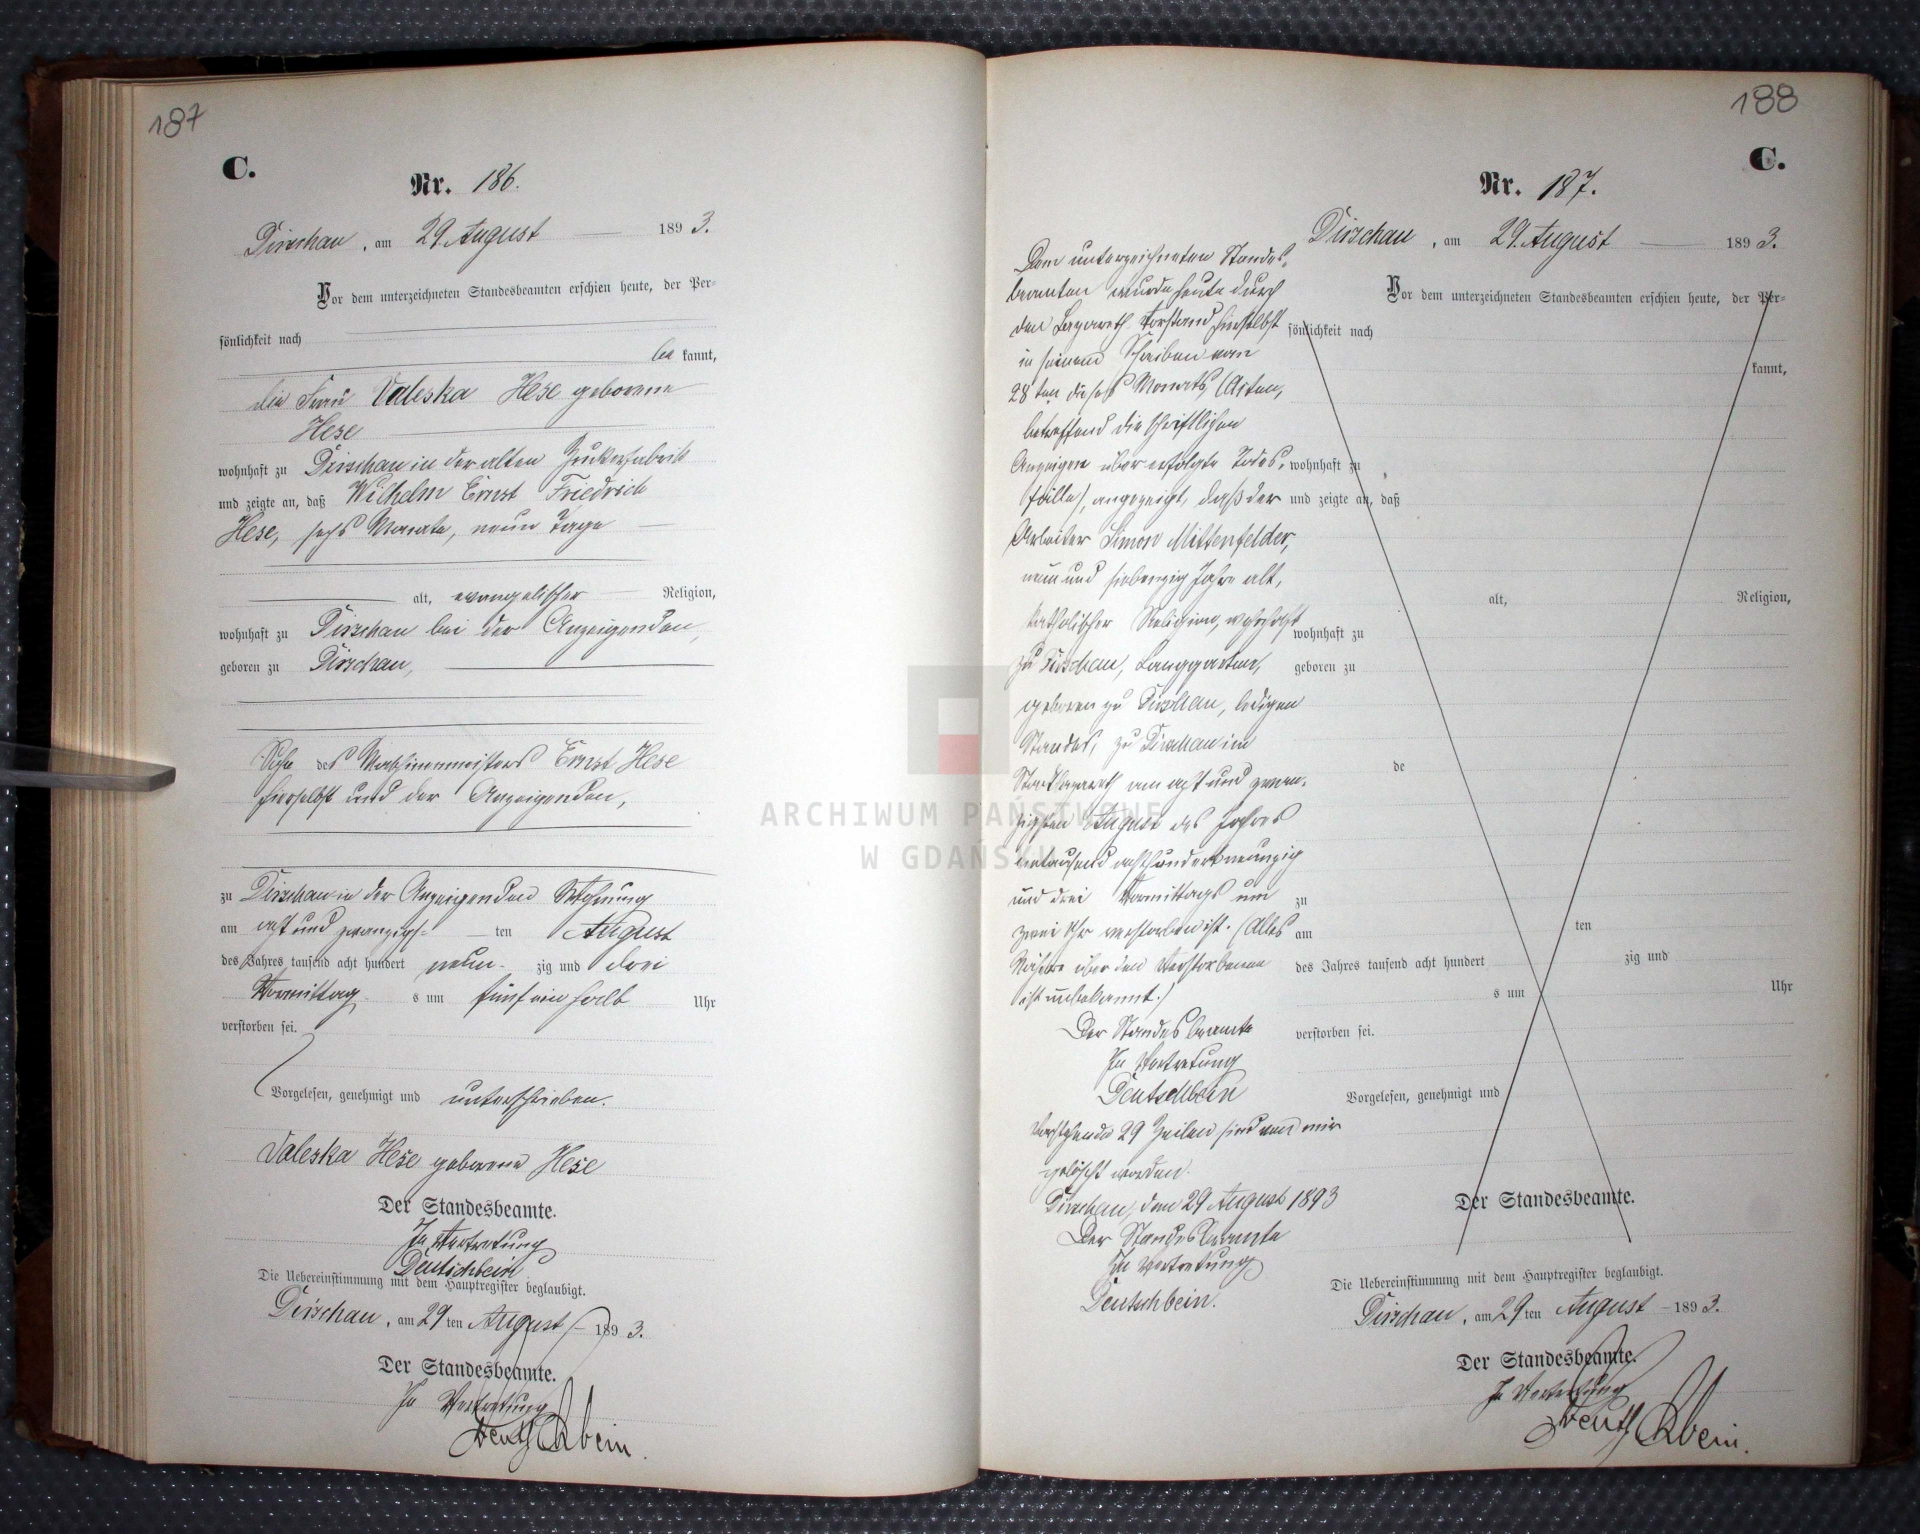 187
C.
Nr. 186.
Dirschau, am 29. August 1893.
Vor dem unterzeichneten Standesbeamten erschien heute, der Per-
sönlichkeit nach
be kannt,
die Frau Valeska Hese geborene
Hese
wohnhaft zu Dirschau in der alten Zuckerfabrik
und zeigte an, daß Wilhelm Ernst Friedrich
Hese, sechs Monate, neun Tage
alt, evangelischer Religion,
wohnhaft zu Dirschau bei der Anzeigenden,
geboren zu Dirschau,
Sohn des Maschinenmeisters Ernst Hese
hierselbst und der Anzeigenden,
zu Dirschau in der Anzeigenden Wohnung
am acht und zwanzig- ten August
des Jahres tausend acht hundert neun- zig und drei
Vormittag s um fünf ein halb Uhr
verstorben sei.
Vorgelesen, genehmigt und unterschrieben.
Valeska Hese geborene Hese
Der Standesbeamte.
In Vertretung
Deutschbein
Die Uebereinstimmung mit dem Hauptregister beglaubigt.
Dirschau, am 29 ten August 1893.
Der Standesbeamte.
In Vertretung
Deutschbein.
188
C.
Nr. 187.
Dirschau, am 29. August 1893.
Vor dem unterzeichneten Standesbeamten erschien heute, der Per-
sönlichkeit nach
kannt,
wohnhaft zu
und zeigte an, daß
alt, Religion,
wohnhaft zu
geboren zu
de
zu
am ten
des Jahres tausend acht hundert zig und
s um Uhr
verstorben sei.
Vorgelesen, genehmigt und
Dem unterzeichneten Standes-
beamten wurde heute durch
den Lazareth-Vorstand hierselbst
in seinem Schreiben vom
28ten dieses Monats (Akten,
betreffend die schriftlichen
Anzeigen über erfolgte Todes-
fälle), angezeigt, daß der
Arbeiter Simon Mittenfelder,
neun und siebenzig Jahre alt,
katholischer Religion, wohnhaft
zu Dirschau, Langgarten,
geboren zu Dirschau, ledigen
Standes, zu Dirschau im
Stadtlazareth am acht und zwan-
zigsten August des Jahres
eintausend achthundertneunzig
und drei Vormittags um
zwei Uhr verstorben ist. (Alles
Nähere über den Verstorbenen
ist unbekannt.)
Der Standesbeamte
In Vertretung
Deutschbein
Vorstehende 29 Zeilen sind von mir
gelöscht worden.
Dirschau, den 29 August 1893
Der Standesbeamte
In Vertretung
Deutschbein.
Der Standesbeamte.
Die Uebereinstimmung mit dem Hauptregister beglaubigt.
Dirschau, am 29 ten August 1893.
Der Standesbeamte.
In Vertretung
Deutschbein.
ARCHIWUM PAŃSTWOWE
W GDAŃSKU